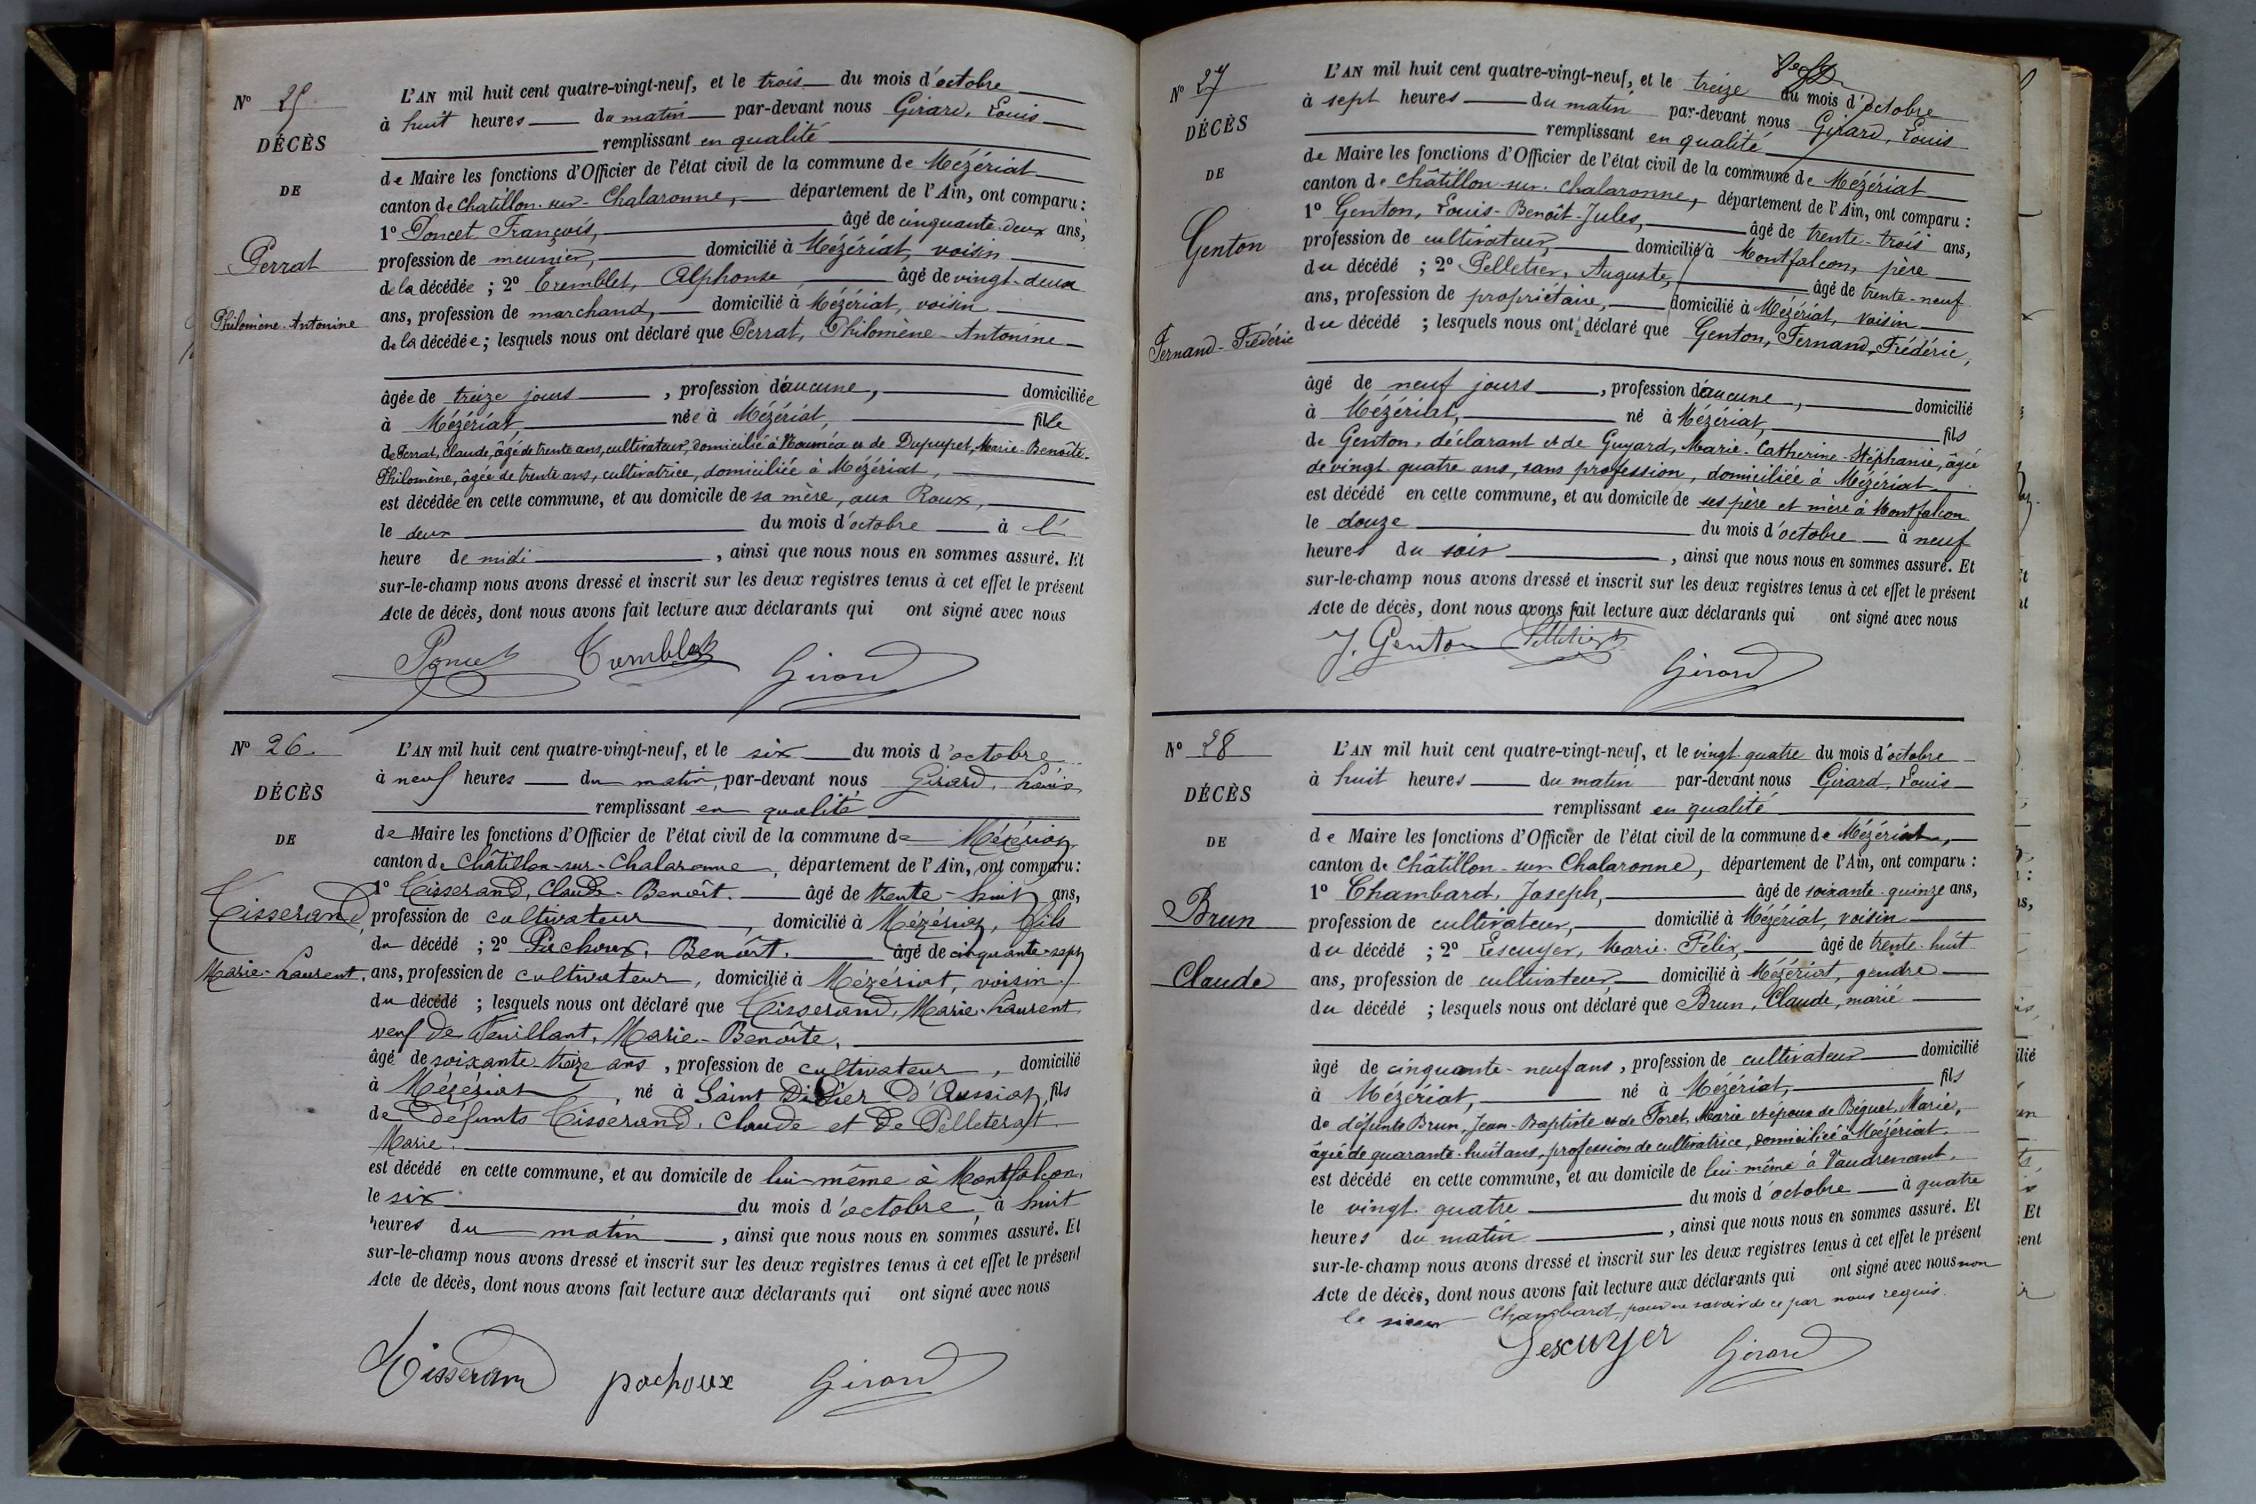 N° 25
DÉCÈS
DE
Perrat
Philomène-Antonine
L'AN mil huit cent quatre-vingt-neuf, et le trois du mois d'octobre
à huit heures du matin par-devant nous Girard, Louis
remplissant en qualité
de Maire les fonctions d'Officier de l'état civil de la commune de Mézériat
canton de Châtillon-sur-Chalaronne, département de l'Ain, ont comparu :
1° Poncet, François, âgé de cinquante-deux ans,
profession de meunier, domicilié à Mézériat, voisin
de la décédée ; 2° Tremblet, Alphonse âgé de vingt-deux
ans, profession de marchand, domicilié à Mézériat, voisin
de la décédée ; lesquels nous ont déclaré que Perrat, Philomène-Antonine
âgée de treize jours , profession d'aucune, domiciliée
à Mézériat, née à Mézériat, fille
de Perrat, Claude, âgé de trente ans, cultivateur, domicilié à Nouméa et de Dupupet, Marie-Benoîte-
Philomène, âgée de trente ans, cultivatrice, domiciliée à Mézériat,
est décédée en cette commune, et au domicile de sa mère, aux Raux,
le deux du mois d'octobre à l'
heure de midi , ainsi que nous nous en sommes assuré. Et
sur-le-champ nous avons dressé et inscrit sur les deux registres tenus à cet effet le présent
Acte de décès, dont nous avons fait lecture aux déclarants qui ont signé avec nous
Poncet Tremblet Girard
N° 26
DÉCÈS
DE
Tisserand,
Marie-Laurent.
L'AN mil huit cent quatre-vingt-neuf, et le six du mois d'octobre
à neuf heures du matin, par-devant nous Girard, Louis
remplissant en qualité
de Maire les fonctions d'Officier de l'état civil de la commune de Mézériat
canton de Châtillon-sur-Chalaronne, département de l'Ain, ont comparu :
1° Tisserand, Claude-Benoît. âgé de trente-huit ans,
profession de cultivateur, domicilié à Mézériat, fils
du décédé ; 2° Pachoux, Benoît. âgé de cinquante-sept
ans, profession de cultivateur, domicilié à Mézériat, voisin
du décédé ; lesquels nous ont déclaré que Tisserand, Marie-Laurent
veuf de Veuillant, Marie-Benoîte,
âgé de soixante-treize ans , profession de cultivateur, domicilié
à Mézériat, né à Saint Didier d'Aussiat, fils
de défunts Tisserand, Claude et de Pelleterat
Marie.
est décédé en cette commune, et au domicile de lui-même à Montfalcon,
le six du mois d'octobre, à huit
heures du matin , ainsi que nous nous en sommes assuré. Et
sur-le-champ nous avons dressé et inscrit sur les deux registres tenus à cet effet le présent
Acte de décès, dont nous avons fait lecture aux déclarants qui ont signé avec nous
Tisserand pachoux Girard
N° 27
DÉCÈS
DE
Genton
Fernand-Frédéric
L'AN mil huit cent quatre-vingt-neuf, et le treize du mois d'octobre
à sept heures du matin par-devant nous Girard, Louis
remplissant en qualité
de Maire les fonctions d'Officier de l'état civil de la commune de Mézériat
canton de Châtillon-sur-Chalaronne, département de l'Ain, ont comparu :
1° Genton, Louis-Benoît-Jules, âgé de trente-trois ans,
profession de cultivateur, domicilié à Montfalcon, père
du décédé ; 2° Pelletier, Auguste, âgé de trente-neuf
ans, profession de propriétaire, domicilié à Mézériat, voisin
du décédé ; lesquels nous ont déclaré que Genton, Fernand-Frédéric,
âgé de neuf jours , profession d'aucune, domicilié
à Mézériat, né à Mézériat, fils
de Genton, déclarant et de Guyard, Marie-Catherine-Stéphanie, âgée
de vingt-quatre ans, sans profession, domiciliée à Mézériat
est décédé en cette commune, et au domicile de ses père et mère à Montfalcon
le douze du mois d'octobre à neuf
heures du soir , ainsi que nous nous en sommes assuré. Et
sur-le-champ nous avons dressé et inscrit sur les deux registres tenus à cet effet le présent
Acte de décès, dont nous avons fait lecture aux déclarants qui ont signé avec nous
J. Genton Pelletier Girard
N° 28
DÉCÈS
DE
Brun
Claude
L'AN mil huit cent quatre-vingt-neuf, et le vingt-quatre du mois d'octobre
à huit heures du matin par-devant nous Girard, Louis
remplissant en qualité
de Maire les fonctions d'Officier de l'état civil de la commune de Mézériat,
canton de Châtillon-sur-Chalaronne, département de l'Ain, ont comparu :
1° Chambard, Joseph, âgé de soixante-quinze ans,
profession de cultivateur, domicilié à Mézériat, voisin
du décédé ; 2° Lescuyer, Marie-Félix, âgé de trente-huit
ans, profession de cultivateur domicilié à Mézériat, gendre
du décédé ; lesquels nous ont déclaré que Brun, Claude, marié
âgé de cinquante-neuf ans, profession de cultivateur domicilié
à Mézériat, né à Mézériat, fils
de défunts Brun, Jean-Baptiste et de Foret, Marie et époux de Béguet, Marie,
âgée de quarante-huit ans, profession de cultivatrice, domiciliée à Mézériat,
est décédé en cette commune, et au domicile de lui-même à Vaudrenant,
le vingt-quatre du mois d'octobre à quatre
heures du matin , ainsi que nous nous en sommes assuré. Et
sur-le-champ nous avons dressé et inscrit sur les deux registres tenus à cet effet le présent
Acte de décès, dont nous avons fait lecture aux déclarants qui ont signé avec nous non
le sieur Chambard, pour ne savoir de ce par nous requis.
Lescuyer Girard